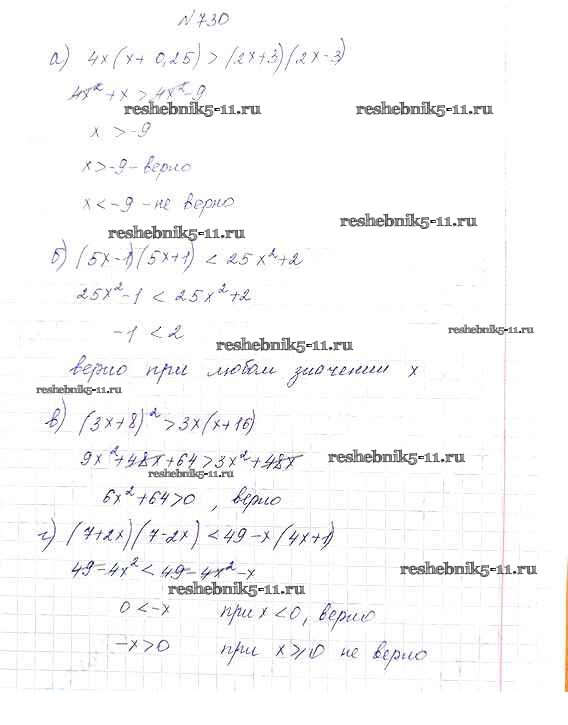 №730
а) 4x(x+0,25)>(2x+3)(2x-3)
4x²+x>4x²-9
reshebnik5-11.ru reshebnik5-11.ru
x>-9
x>-9-верно
x<-9-не верно
reshebnik5-11.ru
reshebnik5-11.ru
б) (5x-1)(5x+1)<25x²+2
25x²-1<25x²+2
-1<2
reshebnik5-11.ru
reshebnik5-11.ru
верно при любом значении x
reshebnik5-11.ru
в) (3x+8)²>3x(x+16)
9x²+48x+64>3x²+48x
reshebnik5-11.ru
reshebnik5-11.ru
6x²+64>0, верно
г) (7+2x)(7-2x)<49-x(4x+1)
49-4x²<49-4x²-x
reshebnik5-11.ru
reshebnik5-11.ru
0<-x при x<0, верно
-x>0 при x⩾0 не верно